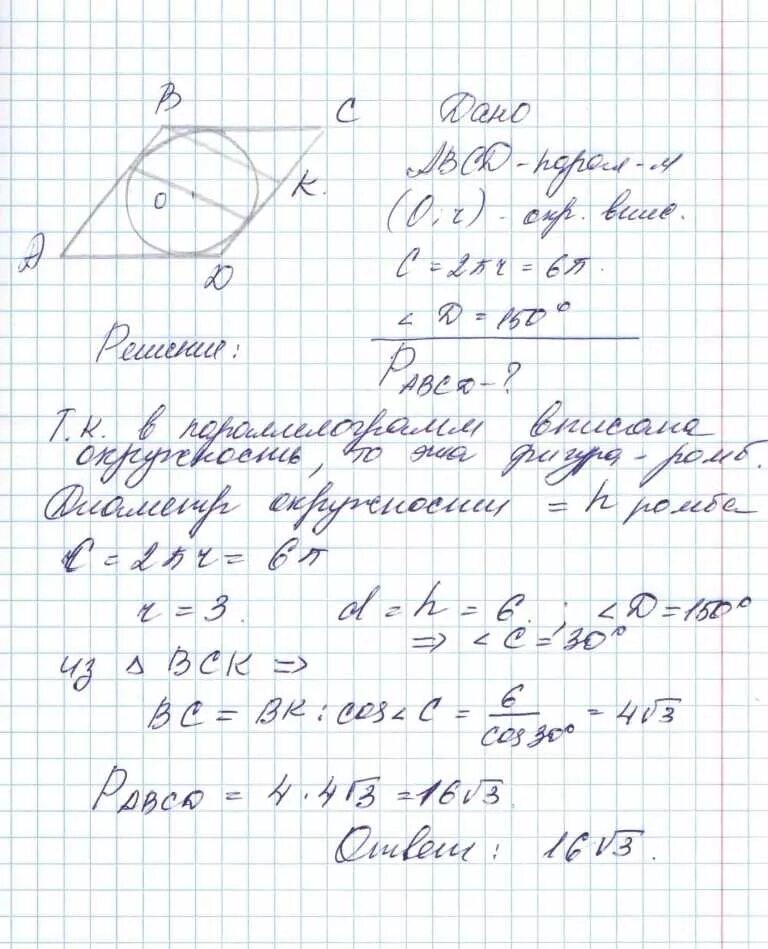 B
C
Дано
ABCD - парал-м
К.
O
(O; r) - окр. впис.
A
D
C = 2πr = 6π.
< D = 150°
Решение:
P ABCD - ?
Т.к. в параллелограмм вписана
окружность, то эта фигура - ромб.
Диаметр окружности = h ромба
C = 2πr = 6π
r = 3. d = h = 6. ; < D = 150°
=> < C = 30°
из △ BCK =>
BC = BK : cos < C = 6/cos 30° = 4√3
P ABCD = 4 · 4√3 = 16√3.
Ответ: 16√3.